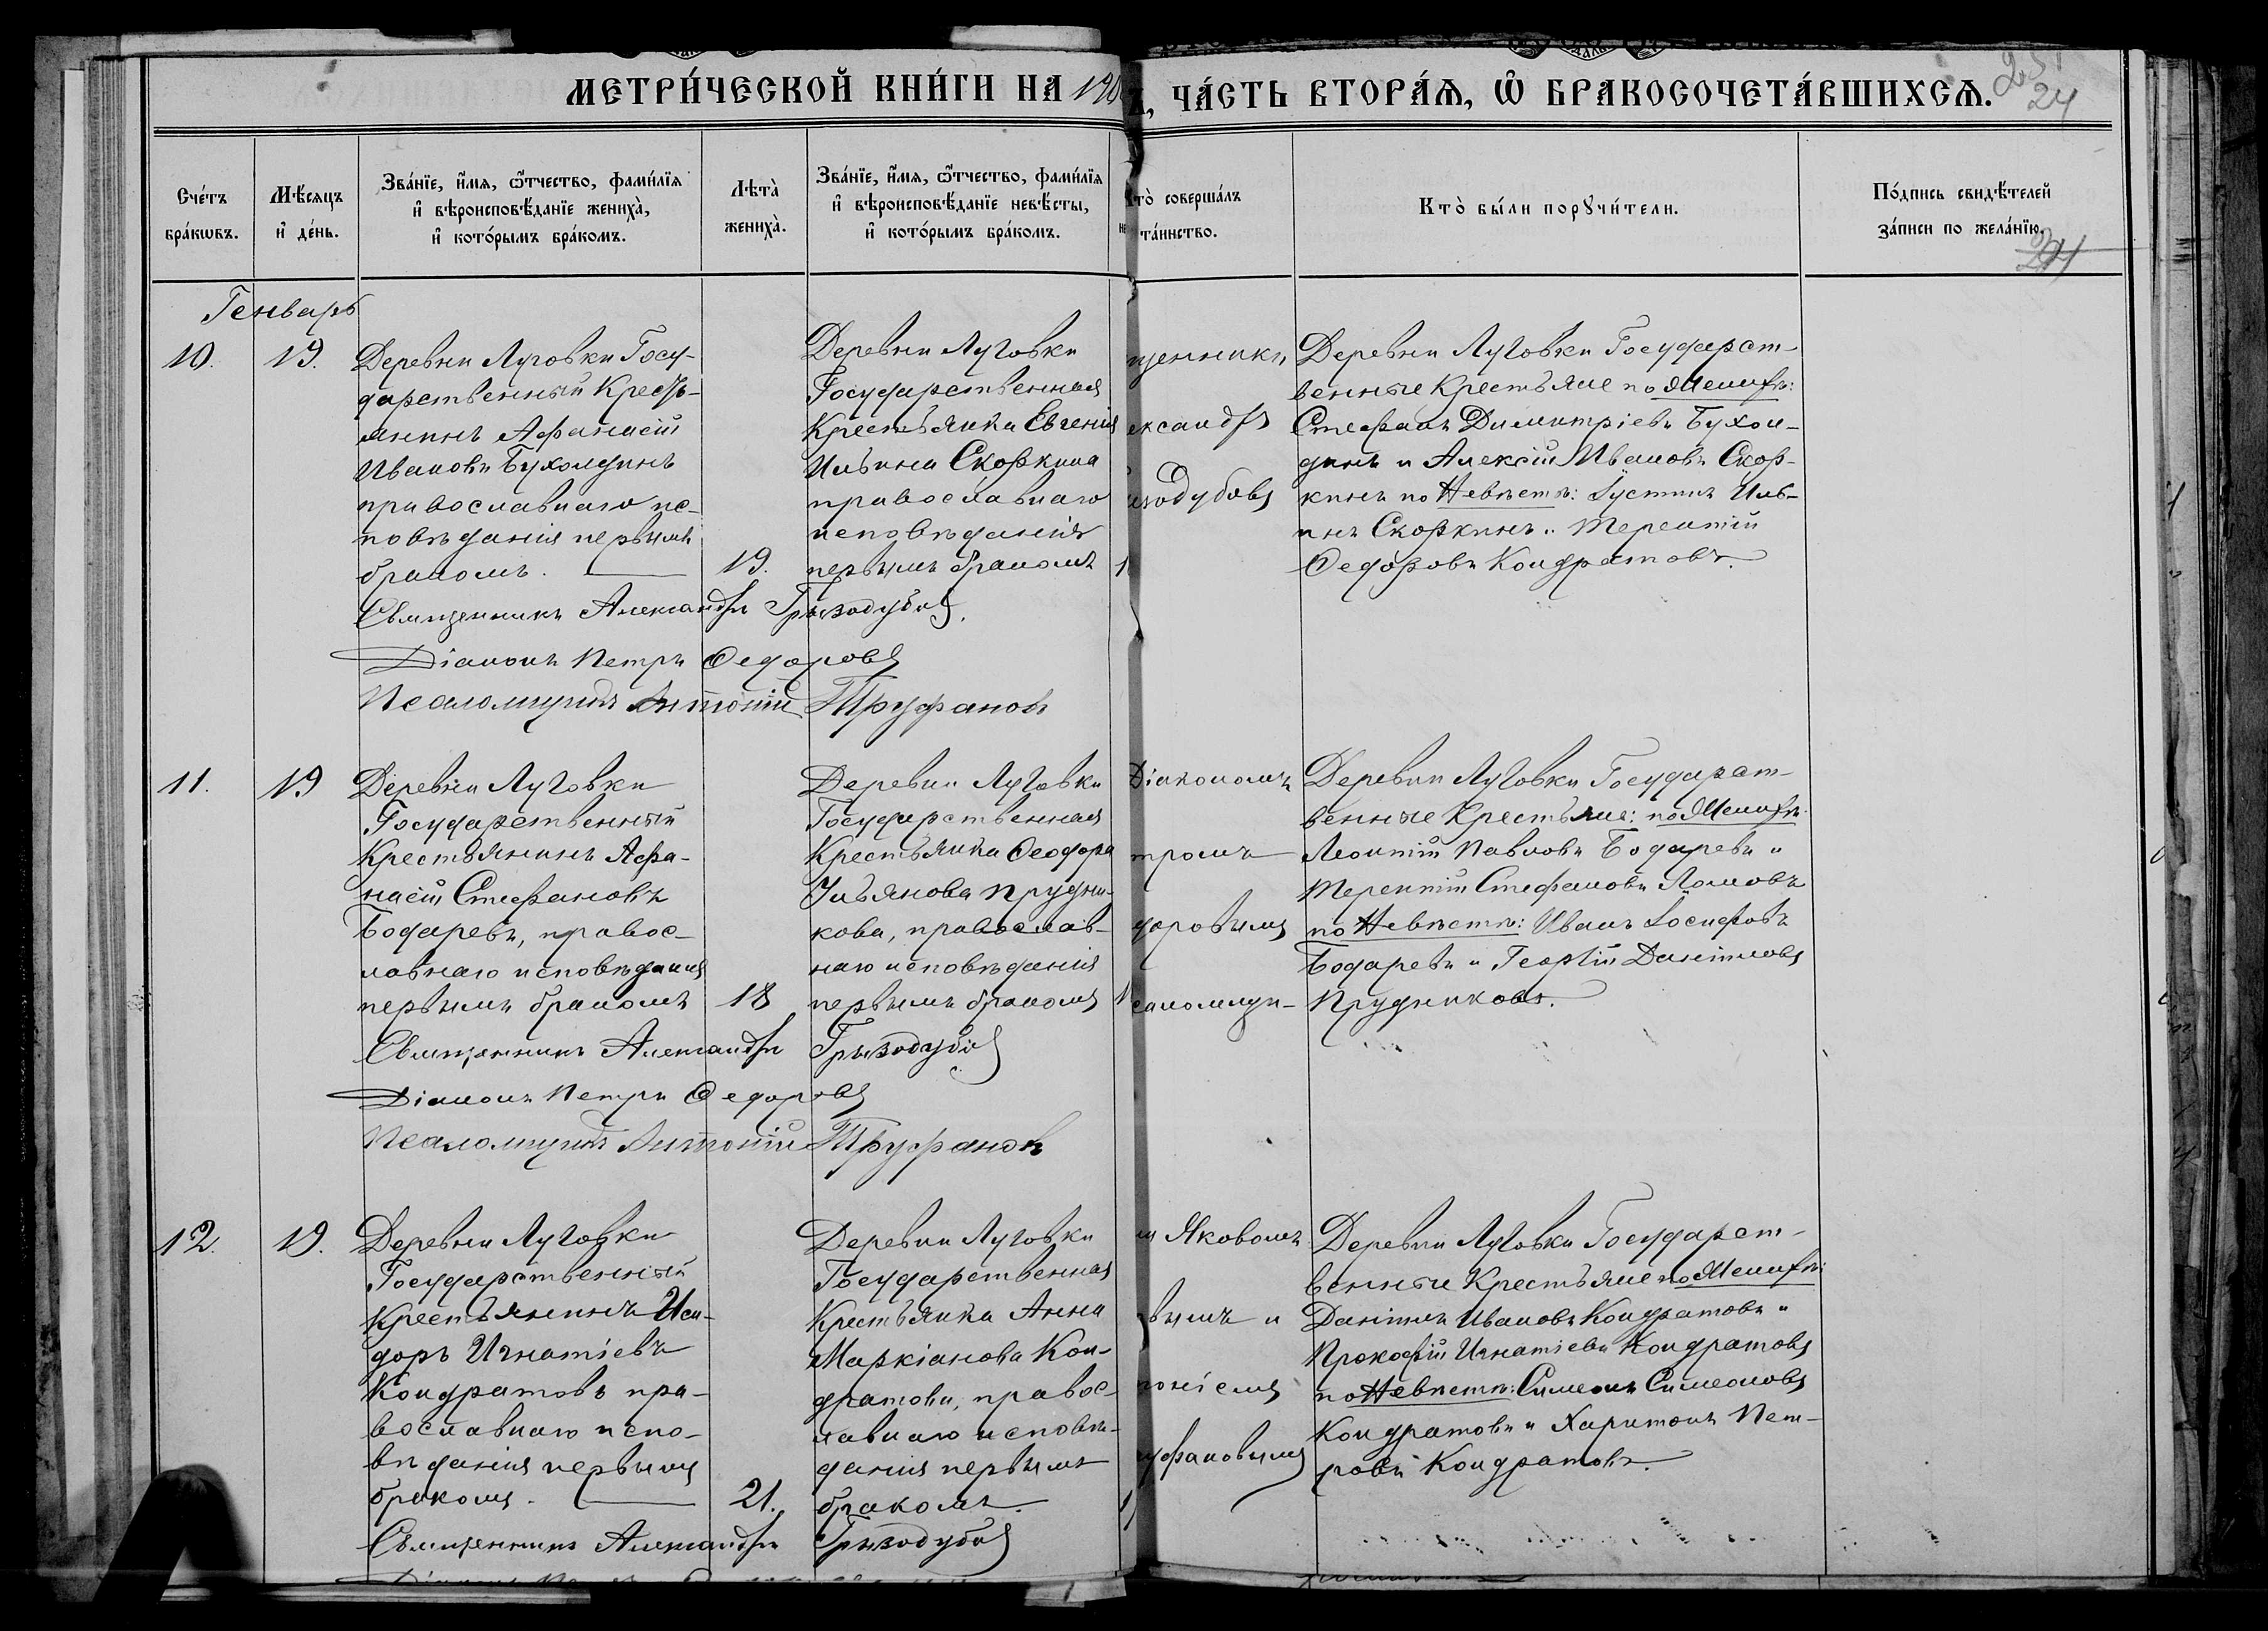 МЕТРИ́ЧЕСКОЙ КНИ́ГИ НА 190
, ЧА́СТЬ ВТОРА́Ѧ, Ѡ҆ БРАКОСОЧЕТА́ВШИХСѦ.
24
Сче́тъ
бра́кѡвъ.
Мѣ́сѧцъ
и҆ де́нь.
Зва́нїе, и҆́мѧ, ѻ҆́тчество, фами́лїѧ
и҆ вѣроисповѣ́данїе жениха̀,
и҆ кото́рымъ бра́комъ.
Лѣта̀
жениха̀.
Зва́нїе, и҆́мѧ, ѻ҆́тчество, фами́лїѧ
и҆ вѣроисповѣ́данїе невѣ́сты,
и҆ кото́рымъ бра́комъ.
то̀ соверша́лъ
та́инство.
Кто̀ бы́ли порꙋчи́тели.
По́дпись свидѣ́телей
за́писи по жела́нїю.
Генварь
10.
19.
Деревни Луговки Госу-
дарственный Кресть-
янинъ Афанасій
Ивановъ Бухолдинъ
православнаго ис-
повѣданія первымъ
бракомъ.
19.
Деревни Луговки
Государственная
Крестьянка Евгенія
Ильина Скоркина
православнаго
исповѣданія
первымъ бракомъ
щенникъ
ександръ
зодубовъ
Деревни Луговки Государст-
венные Крестьяне по Женихѣ:
Стефанъ Димитріевъ Бухол-
динъ и Алексій Ивановъ Скор-
кинъ по Невѣстѣ: Іустинъ Иль-
инъ Скоркинъ и Терентій
Ѳедоровъ Кондратовъ.
Священникъ Александръ Грызодубовъ.
Діаконъ Петръ Ѳедоровъ
Псаломщикъ Антоній Труфановъ
11.
19
Деревни Луговки
Государственный
Крестьянинъ Афа-
насій Стефановъ
Бодаревъ, правос-
лавнаго исповѣданія
первымъ бракомъ
18
Деревни Луговки
Государственная
Крестьянка Ѳеодора
Ульянова Прудни-
кова, православ-
наго исповѣданія
первымъ бракомъ
Діакономъ
тромъ
доровымъ
саломщи-
Деревни Луговки Государст-
венные Крестьяне: по Женихѣ:
Леонтій Павловъ Бодаревъ и
Терентій Стефановъ Ломовъ
по Невѣстѣ: Иванъ Іосифовъ
Бодаревъ и Георгій Даніиловъ
Прудниковъ.
Священникъ Александръ Грызодубовъ
Діаконъ Петръ Ѳедоровъ
Псаломщикъ Антоній Труфановъ
12.
19.
Деревни Луговки
Государственный
Крестьянинъ Иси-
доръ Игнатіевъ
Кондратовъ пра-
вославнаго испо-
вѣданія первымъ
бракомъ.
21.
Деревни Луговки
Государственная
Крестьянка Анна
Маркіанова Кон-
дратова, правос-
лавнаго исповѣ-
данія первымъ
бракомъ.
Яковомъ
вымъ и
тоніемъ
уфановымъ
Деревни Луговки Государст-
венные Крестьяне по Женихѣ:
Даніилъ Ивановъ Кондратовъ и
Прокофій Игнатіевъ Кондратовъ
по Невѣстѣ: Симеонъ Симеоновъ
Кондратовъ и Харитонъ Пет-
ровъ Кондратовъ.
Священникъ Александръ Грызодубовъ